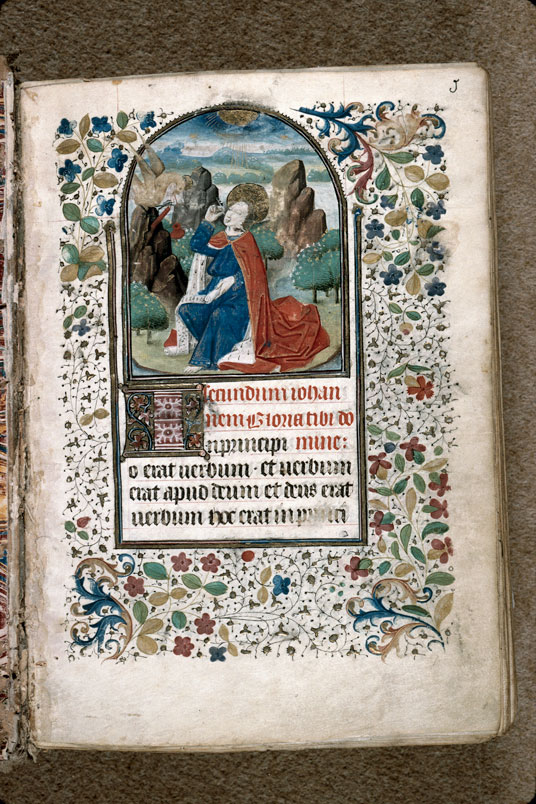 5
ecundum iohan
nem Gloria tibi do
nprincipi mine:
o erat uerbum · et uerbum
erat apud deum et deus erat
uerbum hoc erat in princi